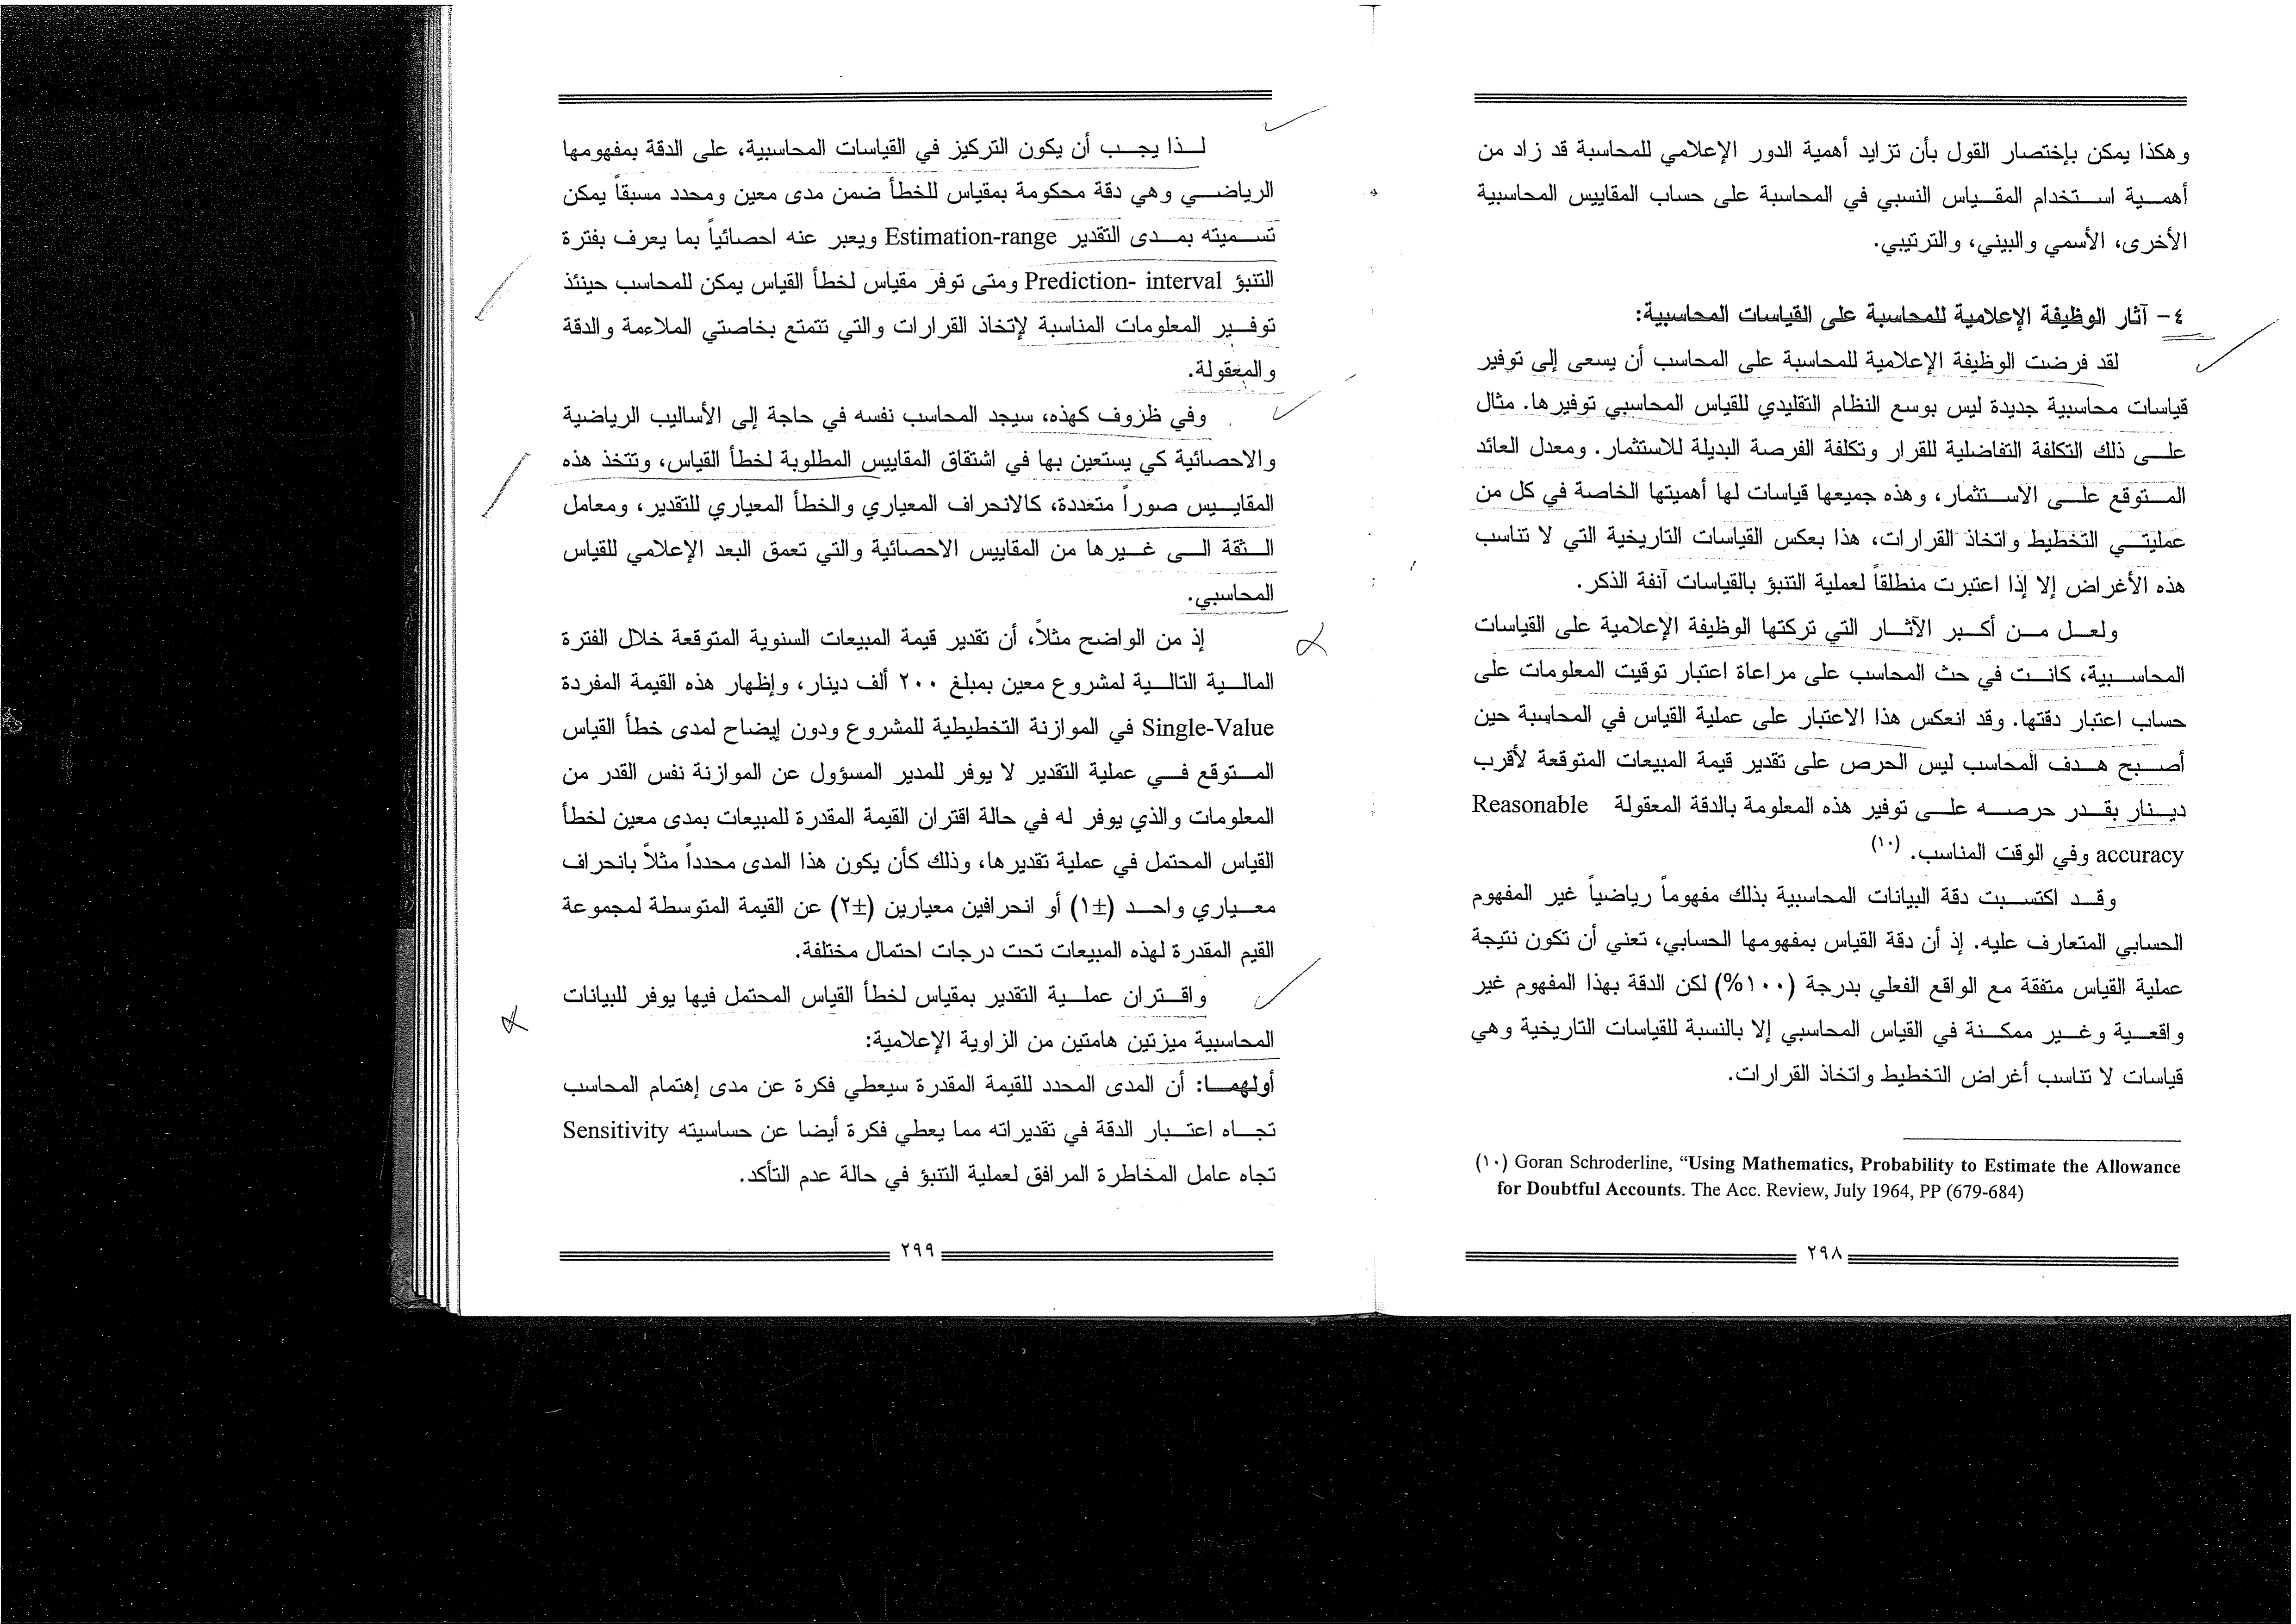 وهكذا يمكن بإختصار القول بأن تزايد أهمية الدور الإعلامي للمحاسبة قد زاد من
أهمية استخدام المقياس النسبي في المحاسبة على حساب المقاييس المحاسبية
الأخرى، الأسمي والبيني، والترتيبي.
٤- آثار الوظيفة الإعلامية للمحاسبة على القياسات المحاسبية:
لقد فرضت الوظيفة الإعلامية للمحاسبة على المحاسب أن يسعى إلى توفير
قياسات محاسبية جديدة ليس بوسع النظام التقليدي للقياس المحاسبي توفيرها. مثال
على ذلك التكلفة التفاضلية للقرار وتكلفة الفرصة البديلة للاستثمار. ومعدل العائد
المتوقع على الاستثمار، وهذه جميعها قياسات لها أهميتها الخاصة في كل من
عمليتي التخطيط واتخاذ القرارات، هذا بعكس القياسات التاريخية التي لا تناسب
هذه الأغراض إلا إذا اعتبرت منطلقاً لعملية التنبؤ بالقياسات آنفة الذكر.
ولعل من أكبر الآثار التي تركتها الوظيفة الإعلامية على القياسات
المحاسبية، كانت في حث المحاسب على مراعاة اعتبار توقيت المعلومات على
حساب اعتبار دقتها. وقد انعكس هذا الاعتبار على عملية القياس في المحاسبة حين
أصبح هدف المحاسب ليس الحرص على تقدير قيمة المبيعات المتوقعة لأقرب
دينار بقدر حرصه على توفير هذه المعلومة بالدقة المعقولة Reasonable
accuracy وفي الوقت المناسب. (١٠)
وقد اكتسبت دقة البيانات المحاسبية بذلك مفهوماً رياضياً غير المفهوم
الحسابي المتعارف عليه. إذ أن دقة القياس بمفهومها الحسابي، تعني أن تكون نتيجة
عملية القياس متفقة مع الواقع الفعلي بدرجة (١٠٠%) لكن الدقة بهذا المفهوم غير
واقعية وغير ممكنة في القياس المحاسبي إلا بالنسبة للقياسات التاريخية وهي
قياسات لا تناسب أغراض التخطيط واتخاذ القرارات.
(١٠) Goran Schroderline, “Using Mathematics, Probability to Estimate the Allowance
for Doubtful Accounts. The Acc. Review, July 1964, PP (679-684)
٢٩٨
لذا يجب أن يكون التركيز في القياسات المحاسبية، على الدقة بمفهومها
الرياضي وهي دقة محكومة بمقياس للخطأ ضمن مدى معين ومحدد مسبقاً يمكن
تسميته بمدى التقدير Estimation-range ويعبر عنه احصائياً بما يعرف بفترة
التنبؤ Prediction- interval ومتى توفر مقياس لخطأ القياس يمكن للمحاسب حينئذ
توفير المعلومات المناسبة لإتخاذ القرارات والتي تتمتع بخاصتي الملاءمة والدقة
والمعقولة.
وفي ظروف كهذه، سيجد المحاسب نفسه في حاجة إلى الأساليب الرياضية
والاحصائية كي يستعين بها في اشتقاق المقاييس المطلوبة لخطأ القياس، وتتخذ هذه
المقاييس صوراً متعددة، كالانحراف المعياري والخطأ المعياري للتقدير، ومعامل
الثقة الى غيرها من المقاييس الاحصائية والتي تعمق البعد الإعلامي للقياس
المحاسبي.
إذ من الواضح مثلاً، أن تقدير قيمة المبيعات السنوية المتوقعة خلال الفترة
المالية التالية لمشروع معين بمبلغ ٢٠٠ ألف دينار، وإظهار هذه القيمة المفردة
Single-Value في الموازنة التخطيطية للمشروع ودون إيضاح لمدى خطأ القياس
المتوقع في عملية التقدير لا يوفر للمدير المسؤول عن الموازنة نفس القدر من
المعلومات والذي يوفر له في حالة اقتران القيمة المقدرة للمبيعات بمدى معين لخطأ
القياس المحتمل في عملية تقديرها، وذلك كأن يكون هذا المدى محدداً مثلاً بانحراف
معياري واحد (±١) أو انحرافين معيارين (±٢) عن القيمة المتوسطة لمجموعة
القيم المقدرة لهذه المبيعات تحت درجات احتمال مختلفة.
واقتران عملية التقدير بمقياس لخطأ القياس المحتمل فيها يوفر للبيانات
المحاسبية ميزتين هامتين من الزاوية الإعلامية:
أولهما: أن المدى المحدد للقيمة المقدرة سيعطي فكرة عن مدى إهتمام المحاسب
تجاه اعتبار الدقة في تقديراته مما يعطي فكرة أيضا عن حساسيته Sensitivity
تجاه عامل المخاطرة المرافق لعملية التنبؤ في حالة عدم التأكد.
٢٩٩